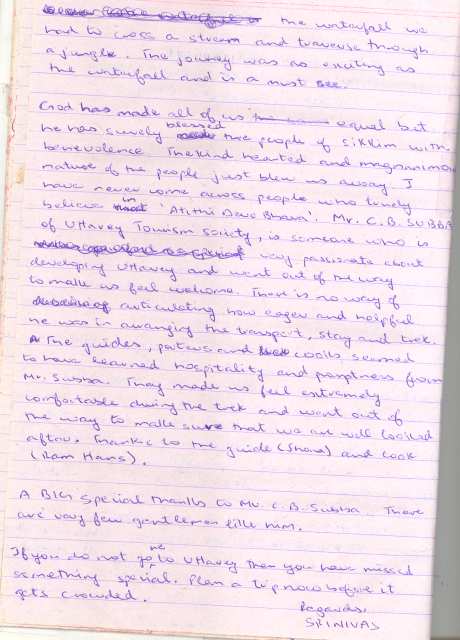 the waterfall we
had to cross a stream and traverse through
a jungle. The journey was as exciting as
the waterfall and is a must see.
God has made all of us equal but
he has surely blessed the people of Sikkim with
benevolence. The kind hearted and magnanimous
nature of the people just blew us away. I
have never come across people who truly
believe in 'Atithi Devo Bhava'. Mr. C.B. SUBBA
of Uttarey Tourism society, is someone who is
very passionate about
developing Uttarey and went out of the way
to make us feel welcome. There is no way of
articulating how eager and helpful
he was in arranging the transport, stay and trek.
The guides, porters and cooks seemed
to have learned hospitality and promptness from
Mr. Subba. They made us feel extremely
comfortable during the trek and went out of
the way to make sure that we are well looked
after. Thanks to the guide (Shova) and cook
(Ram Hans).
A BIG special thanks to Mr. C.B. Subba. There
are very few gentlemen like him.
If you do not gone to Uttarey then you have missed
something special. Plan a trip now before it
gets crowded.
Regards,
SRINIVAS